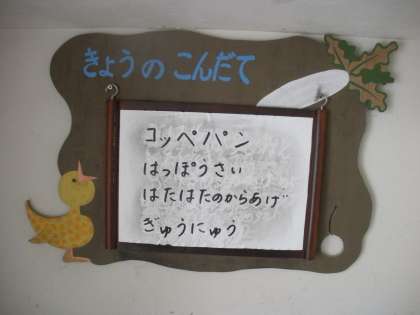 きょうの こんだて
コッペパン
はっぽうさい
はたはたのからあげ
ぎゅうにゅう